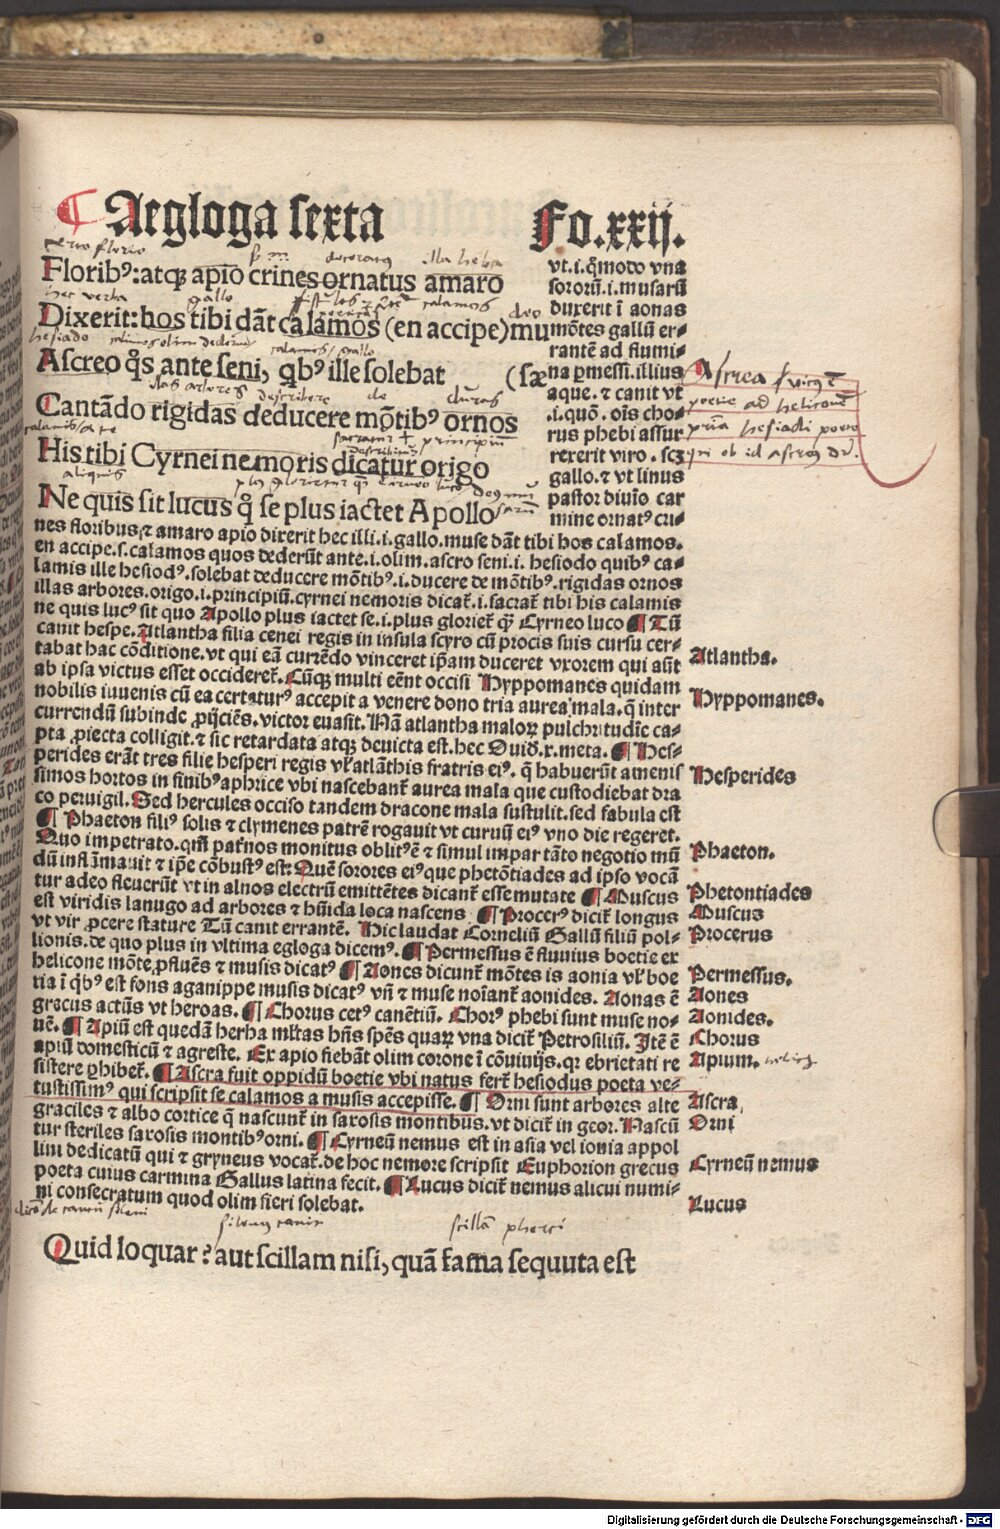 Aegloga sexta Fo.xxij.
Floribꝰ: atqꝫ apio crines ornatus amaro
Dixerit: hos tibi dãt calamos (en accipe) mu
Ascreo q̃s ante seni, qbꝰ ille solebat (sæ
Cantãdo rigidas deducere mõtibꝰ ornos
His tibi Cyrnei nemoris dicatur origo
Ne quis sit lucus q̃ se plus iactet Apollo
vt.i.q̃modo vna
sororũ.i.musarũ
duxerit ĩ aonas
mõtes gallũ er-
rantẽ ad flumi-
na ꝑmessi.illius
aque. ⁊ canit vt
.i.quõ. oĩs cho-
rus phebi assur
rexerit viro. scꝫ
gallo.⁊ vt linus
pastor diuĩo car
mine ornatꝰ cri-
nes floribus,⁊ amaro apio dixerit hec illi.i.gallo.muse dãt tibi hos calamos.
en accipe.s.calamos quos dederũt ante.i.olim.ascro seni.i. hesiodo quibꝰ ca-
lamis ille hesiodꝰ.solebat deducere mõtibꝰ.i.ducere de mõtibꝰ.rigidas ornos
illas arbores.origo.i.principiũ.cyrnei nemoris dicat̃.i.sacrat̃ tibi his calamis
ne quis lucꝰ sit quo Apollo plus iactet se.i.plus gloriet̃ qꝫ Cyrneo luco ¶ Tũ
canit hespe. Atlantha filia cenei regis in insula scyro cũ procis suis cursu cer-
tabat hac cõditione.vt qui eã currẽdo vinceret ip̃am duceret vxorem qui aũt
ab ipsa victus esset occideret̃. Cũqꝫ multi eẽnt occisi Hyppomanes quidam
nobilis iuuenis cũ ea certaturꝰ accepit a venere dono tria aurea mala.q̃ inter
currendũ subinde ꝓijciẽs.victor euasit. Nã atlantha maloꝝ pulchritudĩe ca-
pta ꝓiecta colligit.⁊ sic retardata atqꝫ deuicta est.hec Ouid.x.meta. ¶ Hes-
perides erãt tres filie hesperi regis vl̃ atlãthis fratris eiꝰ. q̃ habuerũt amenis
simos hortos in finibꝰ aphrice vbi nascebant̃ aurea mala que custodiebat dra
co peruigil. Sed hercules occiso tandem dracone mala sustulit.sed fabula est
¶ Phaeton filiꝰ solis ⁊ clymenes patrẽ rogauit vt curuũ eiꝰ vno die regeret.
Quo impetrato.qm̃ pat̃nos monitus oblitꝰ ẽ ⁊ simul impar tãto negotio mũ
dũ inflãmauit ⁊ ip̃e cõbustꝰ est: Quẽ sorores eiꝰ que phetõtiades ad ipso vocã
tur adeo fleuerũt vt in alnos electrũ emittẽtes dicant̃ esse mutate ¶ Muscus
est viridis lanugo ad arbores ⁊ hũida loca nascens ¶ Procerꝰ dicit̃ longus
vt vir ꝓcere stature Tũ canit errantẽ. Hic laudat Corneliũ Gallũ filiũ pol-
lionis.de quo plus in vltima egloga dicemꝰ. ¶ Permessus ẽ fluuius boetie ex
helicone mõte,ꝓfluẽs ⁊ musis dicatꝰ ¶ Aones dicunt̃ mõtes is aonia vl̃ boe
tia ĩ q̃bꝰ est fons aganippe musis dicatꝰ vñ ⁊ muse noĩant̃ aonides. Aonas ẽ
grecus actũs vt heroas. ¶ Chorus cetꝰ canẽtiũ. Chorꝰ phebi sunt muse no-
uẽ. ¶ Apiũ est quedã herba ml̃tas hñs spẽs quaꝝ vna dicit̃ Petrosiliũ. Itẽ ẽ
apiũ domesticũ ⁊ agreste. Ex apio fiebãt olim corone ĩ cõuiuijs.qr ebrietati re
sistere ꝑhibet̃. ¶ Ascra fuit oppidũ boetie vbi natus fert̃ hesiodus poeta ve-
tustissimꝰ qui scripsit se calamos a musis accepisse. ¶ Orni sunt arbores alte
graciles ⁊ albo cortice q̃ nascunt̃ in saxosis montibus.vt dicit̃ in geor. Nascũ
tur steriles saxosis montibꝰ orni. ¶ Cyrneũ nemus est in asia vel ionia appol
lini dedicatũ qui ⁊ gryneus vocat̃.de hoc nemore scripsit Euphorion grecus
poeta cuius carmina Gallus latina fecit. ¶ Lucus dicit̃ nemus alicui numi-
ni consecratum quod olim fieri solebat.
Quid loquar? aut scillam nisi, quã fama sequuta est
Atlantha.
Hyppomanes.
Hesperides
Phaeton.
Phetontiades
Muscus
Procerus
Permessus.
Aones
Aonides.
Chorus
Apium.
Ascra
Orni
Cyrneũ nemus
Lucus
Digitalisierung gefördert durch die Deutsche Forschungsgemeinschaft - DFG